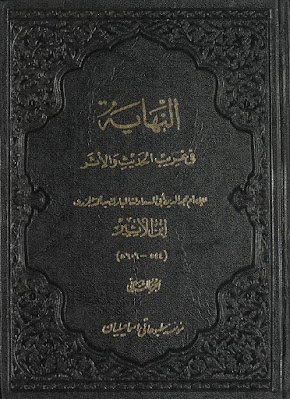 النهاية
في غريب الحديث والأثر
للإمام مجد الدين أبي السعادات المبارك بن محمد الجزري
ابن الأثير
(٥٤٤ - ٦٠٦هـ)
الجزء
مؤسسة إسماعيليان